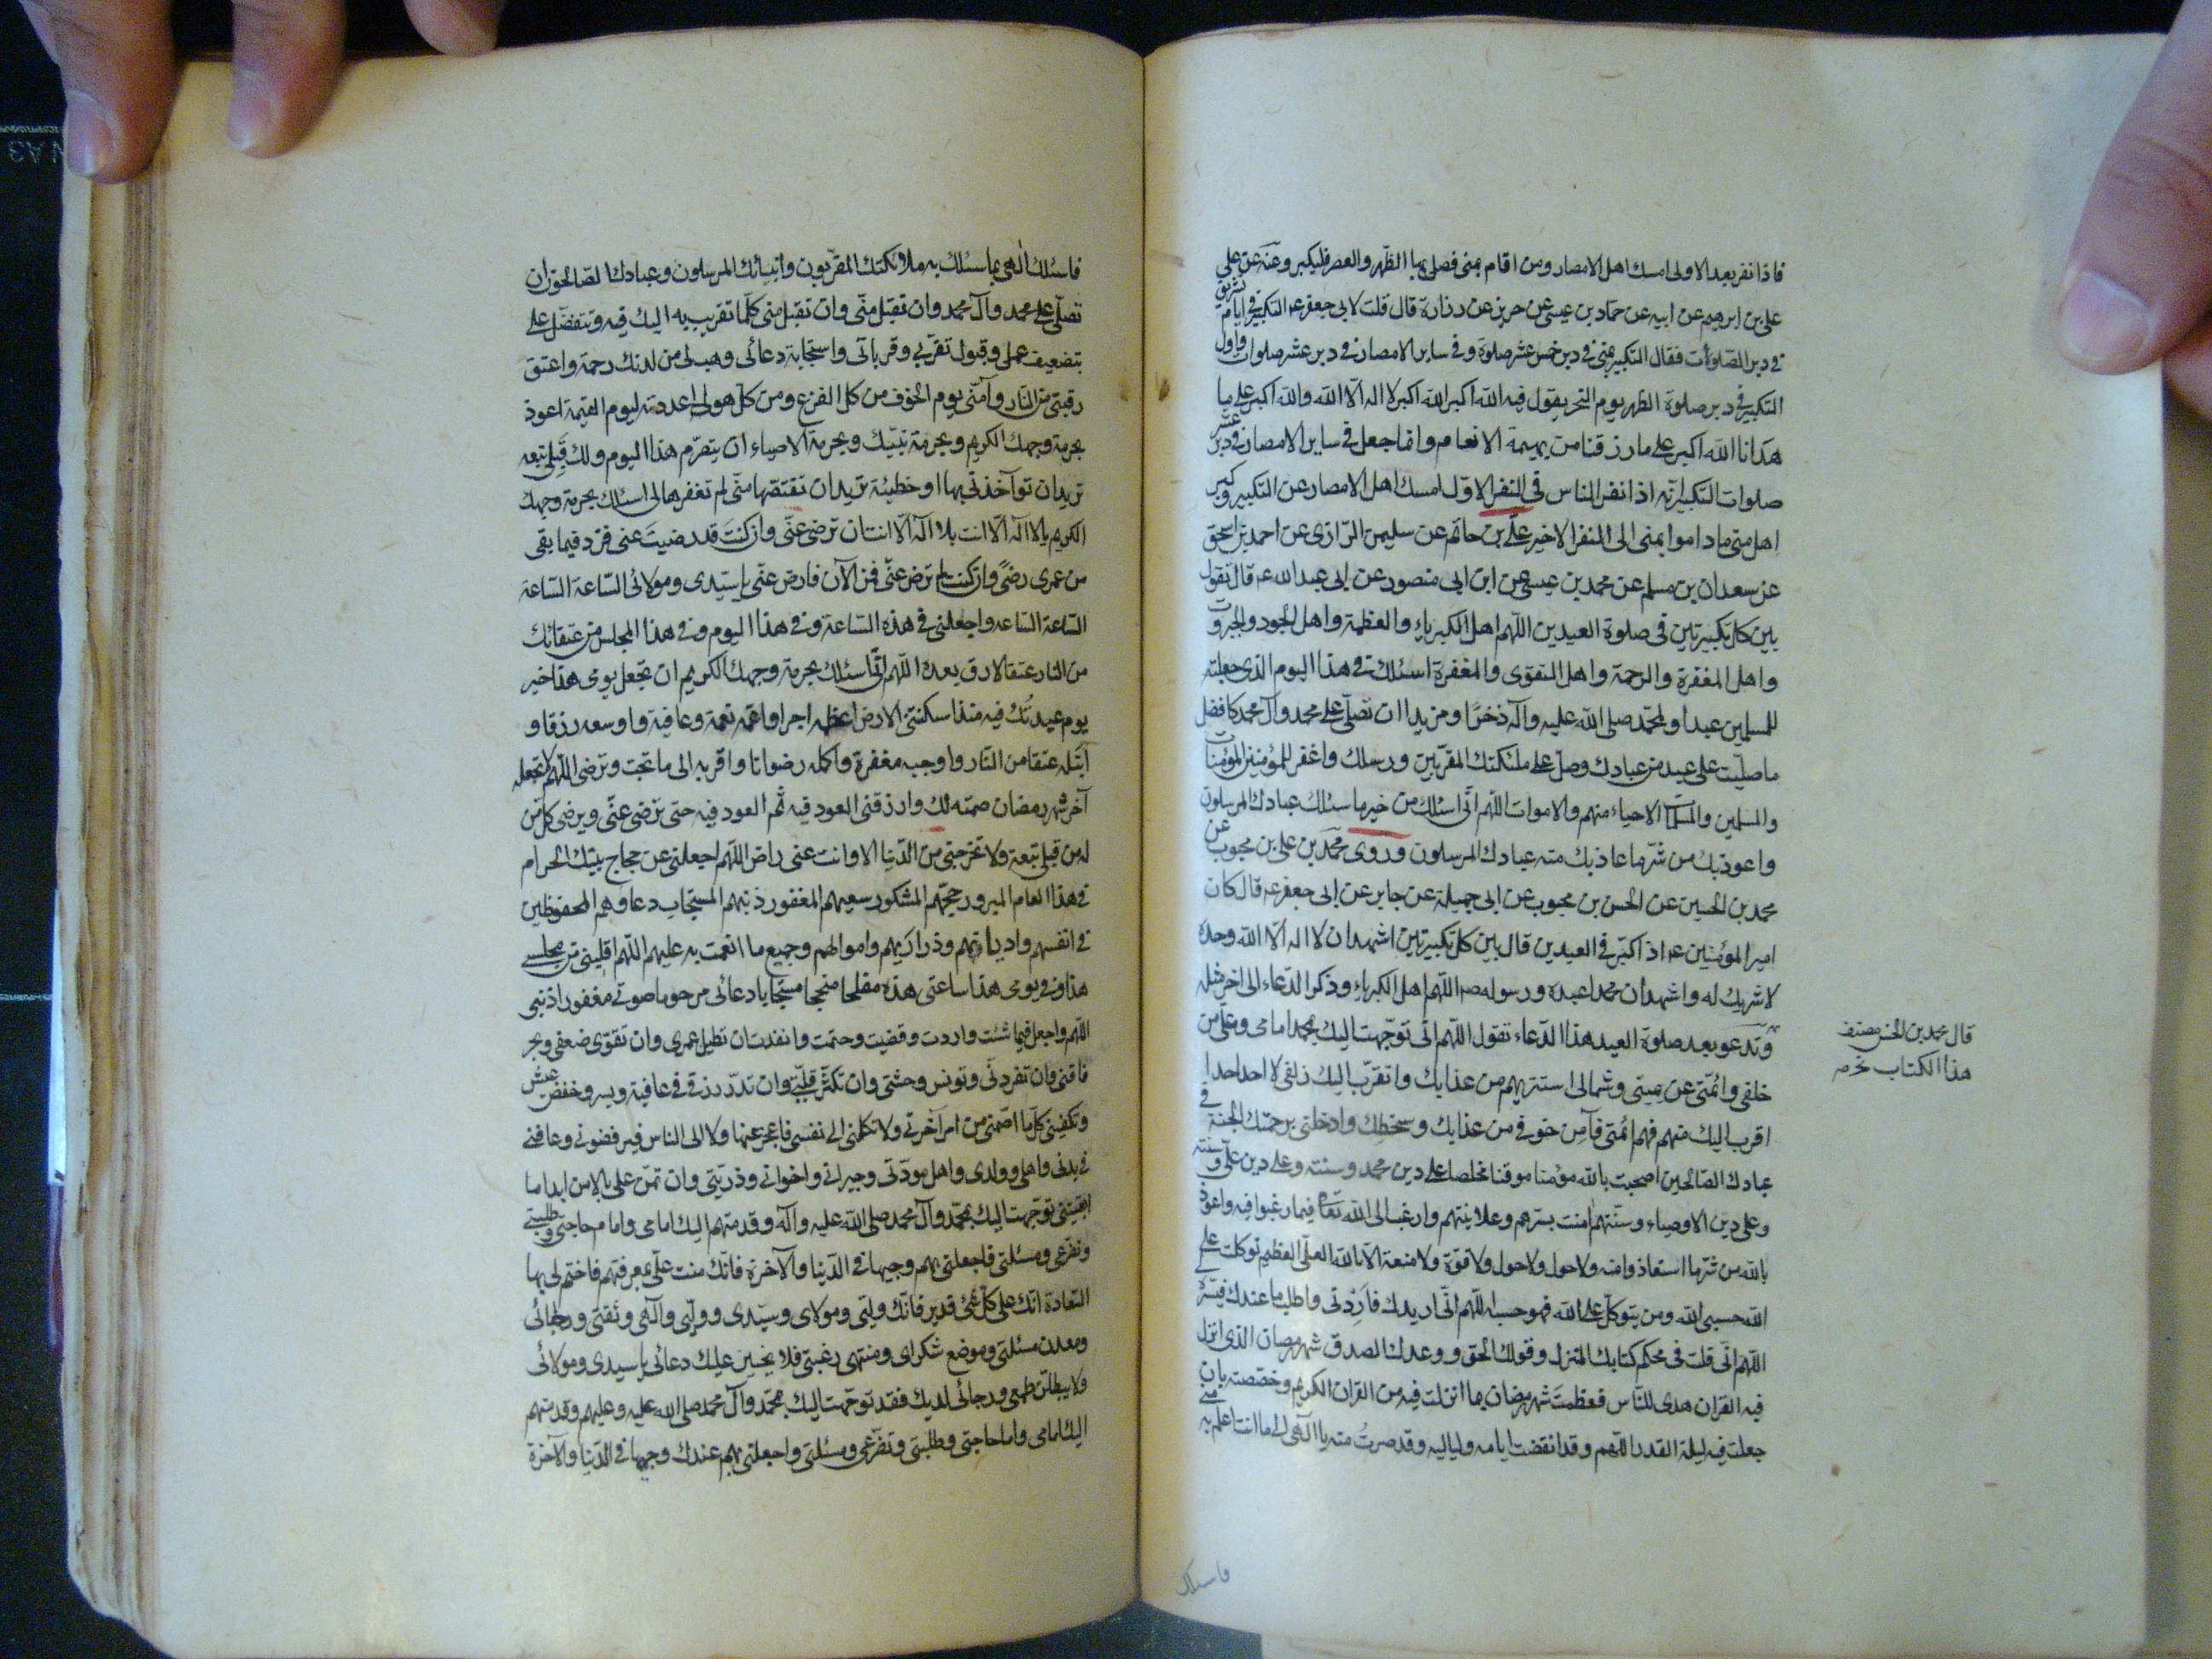 فاذا نفر بعد الاولى امسك اهل الامصار ومن اقام بمنى فصلى بها الظهر والعصر فليكبر وعنه عن على
على بن ابرهيم عن ابيه عن حماد بن عيسى عن حريز عن زرارة قال قلت لابى جعفر عه التكبير فى ايام تشريق
فى دبر الصلوات فقال التكبير بمنى فى دبر خمس عشر صلوة وفى ساير الامصار فى دبر عشر صلوات واول
التكبير فى دبر صلوة الظهر يوم النحر يقول فيه الله اكبر الله اكبر لا اله الا الله والله اكبر على ما
هدانا الله اكبر على ما رزقنا من بهيمة الانعام وانما جعل فى ساير الامصار فى دبر عشر
صلوات التكبير انه اذا نفر الناس فى النفر الاول امسك اهل الامصار عن التكبير وكبر
اهل منى ما داموا بمنى الى النفر الاخير على بن حاتم عن سليمن الرازى عن احمد بن اسحق
عن سعدان بن مسلم عن محمد بن عيسى عن ابن ابى منصور عن ابى عبد الله عه قال تقول
بين كل تكبيرتين فى صلوة العيدين اللهم اهل الكبرياء والعظمة واهل الجود والجبروت
واهل المغفرة والرحمة واهل التقوى والمغفرة اسئلك فى هذا اليوم الذى جعلته
للمسلمين عيدا ولمحمد صلى الله عليه وآله ذخرا ومزيدا ان تصلى على محمد وآل محمد كافضل
ما صليت على عبد من عبادك وصل على ملئكتك المقربين ورسلك واغفر للمؤمنين والمؤمنات
والمسلمين والمسلمات الاحياء منهم والاموات اللهم انى اسئلك من خير ما سئلك عبادك المرسلون
واعوذ بك من شر ما عاذ بك منه عبادك المرسلون وروى محمد بن على بن محبوب عن
محمد بن الحسين عن الحسن بن محبوب عن ابى جميلة عن جابر عن ابى جعفر عه قال كان
امير المؤمنين عه اذا كبر فى العيدين قال بين كل تكبيرتين اشهد ان لا اله الا الله وحده
لا شريك له واشهد ان محمدا عبده ورسوله صه اللهم اهل الكبرياء وذكر الدعاء الى اخر مثله
وتدعو بعد صلوة العيد هذا الدعاء تقول اللهم انى توجهت اليك بمحمد امامى وعلى من
خلفى وائمتى عن يمينى وشمالى استتر بهم من عذابك واتقرب اليك زلفى لا احد احدا
اقرب اليك منهم فهم ائمتى فآمن خوفى من عذابك وسخطك وادخلنى برحمتك الجنة فى
عبادك الصالحين اصبحت بالله مؤمنا موقنا مخلصا على دين محمد وسنته وعلى دين على وسنته
وعلى دين الاوصياء وسنتهم امنت بسرهم وعلانيتهم وارغب الى الله تعا فيما رغبوا فيه واعوذ
بالله من شر ما استعاذوا منه ولا حول ولا حول ولا قوة ولا منعة الا بالله العلى العظيم توكلت على
الله حسبى الله ومن يتوكل على الله فهو حسبه اللهم انى اريدك فاردنى واطلب ما عندك فيسره
اللهم انى قلت فى محكم كتابك المنزل وقولك الحق ووعدك الصدق شهر رمضان الذى انزل
فيه القران هدى للناس فعظمت شهر رمضان بما انزلت فيه من القران الكريم وخصصته بان
جعلت فيه ليلة القدر اللهم وقد انقضت ايامه ولياليه وقد صرت منه يا الهى الى ما انت اعلم به منى
قال محمد بن الحسن مصنف
هذا الكتاب
فاسئلك
فاسئلك الهى بما سئلك به ملائكتك المقربون وانبيائك المرسلون وعبادك الصالحون ان
تصلى على محمد وآل محمد وان تقبل منى وان تقبل منى كلما تقرب به اليك فيه وتتفضل على
بتضعيف عملى وقبول تقربى وقرباتى واستجابة دعائى وهب لى من لدنك رحمة واعتق
رقبتى من النار وآمنى يوم الخوف من كل الفزع ومن كل هول اعددته ليوم القيمة اعوذ
بحرمة وجهك الكريم وبحرمة نبيك وبحرمة الاوصياء ان يتصرم هذا اليوم ولك قبلى تبعة
تريد ان تؤاخذنى بها او خطيئة تريد ان تقتصها منى لم تغفرها لى اسئلك بحرمة وجهك
الكريم يا لا اله الا انت بلا اله الا انت ان ترضى عنى وان كنت قد رضيت عنى فزد فيما بقى
من عمرى رضى وان كنت لم ترض عنى فمن الآن فارض عنى يا سيدى ومولائى الساعة الساعة
الساعة الساعه واجعلنى فى هذه الساعة وفى هذا اليوم وفى هذا المجلس من عتقائك
من النار عتقا لا رق بعده اللهم انى اسئلك بحرمة وجهك الكريم ان تجعل يومى هذا خير
يوم عبدتك فيه منذ اسكنتنى الارض اعظمه اجرا واعمه نعمة وعافية واوسعه رزقا و
ابتله عتقا من النار واوجبه مغفرة واكمله رضوانا واقربه الى ما تحب وترضى اللهم لا تجعله
آخر شهر رمضان صمته لك وارزقنى العود فيه ثم العود فيه حتى ترضى عنى ويرضى كل من
له من قبلى تبعة ولا تخرجنى من الدنيا الا وانت عنى راض اللهم اجعلنى من حجاج بيتك الحرام
فى هذا العام المبرور حجهم المشكور سعيهم المغفور ذنبهم المستجاب دعاؤهم المحفوظين
فى انفسهم واديانهم وذراريهم واموالهم وجميع ما انعمت به عليهم اللهم اقلبنى من مجلسى
هذا وفى يومى هذا ساعتى هذه مفلحا منجحا مستجابا دعائى مرحوما صوتى مغفورا ذنبى
اللهم واجعل فيما شئت واردت وقضيت وحتمت وانفذت ان تطيل عمرى وان تقوى ضعفى وتجبر
فاقتى وان تفردنى وتونس وحشتى وان تكثر قلتى وان تدر رزقى فى عافية ويسر وخفض عيش
وتكفينى كل ما اهمنى من امر آخرتى ولا تكلنى الى نفسى فاعجز عنها ولا الى الناس فيرفضونى وعافنى
فى بدنى واهلى وولدى واهل مودتى وجيرانى واخوانى وذريتى وان تمن على بالامن ابدا ما
ابقيتنى توجهت اليك بمحمد وآل محمد صلى الله عليه وآله وقدمتهم اليك امامى وامام حاجتى وطلبتى
وتضرعى ومسئلتى فاجعلنى بهم وجيها فى الدنيا والآخرة فانك مننت على بمعرفتهم فاختم لى بها
السعادة انك على كل شئ قدير فانك وليى ومولاى وسيدى وربى وآلهى وثقتى ورجائى
ومعدن مسئلتى وموضع شكواى ومنتهى رغبتى فلا يخيبن عليك دعائى يا سيدى ومولائى
ولا يبطلن طمعى ورجائى لديك فقد توجهت اليك بمحمد وآل محمد صلى الله عليه وعليهم وقدمتهم
اليك امامى وامام حاجتى وطلبتى وتضرعى ومسئلتى واجعلنى بهم عندك وجيها فى الدنيا والآخرة